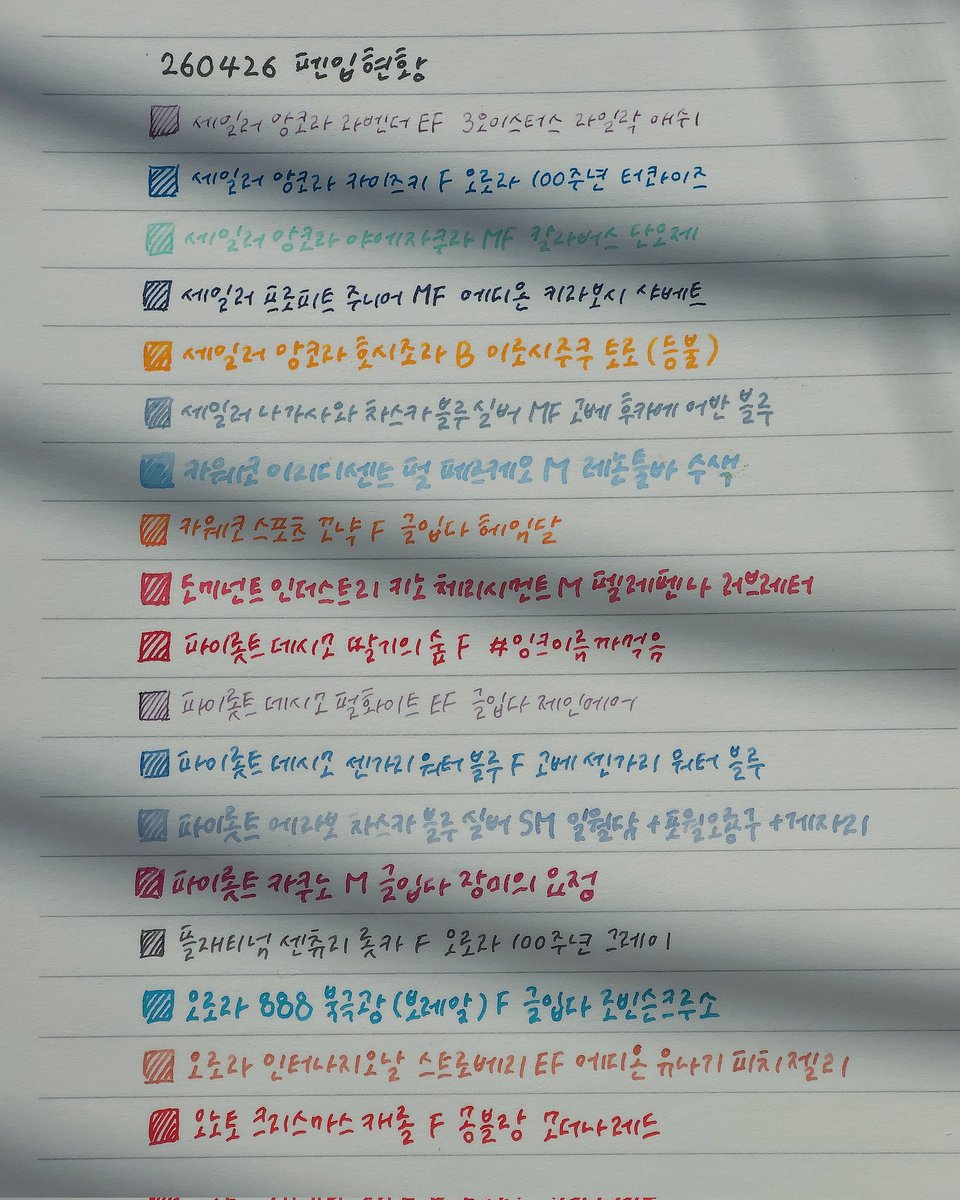 260426 펜입현황
세일러 앙코라 라벤더 EF 3오이스터스 라일락 애쉬
세일러 앙코라 카이즈키 F 오로라 100주년 터콰이즈
세일러 앙코라 야에자쿠라 MF 칼라버스 난오제
세일러 프로피트 주니어 MF 에디온 키라보시 샤베트
세일러 앙코라 호시조라 B 이로시주쿠 토로 (등불)
세일러 나가사와 차스카 블루 실버 MF 고베 후카에 어반 블루
카웨코 이리디센트 펄 페르케오 M 레논툴바 수색
카웨코 스포츠 꼬냑 F 글입다 헤임달
도미넌트 인더스트리 키노 체리시먼트 M 펠레펜나 러브레터
파이롯트 데시모 딸기의 숲 F #잉크이름까먹음
파이롯트 데시모 펄화이트 EF 글입다 제인에어
파이롯트 데시모 센가리 워터 블루 F 고베 센가리 워터 블루
파이롯트 에라보 차스카 블루 실버 SM 일월담 + 포월오룡구 + 게자리
파이롯트 카쿠노 M 글입다 장미의 요정
플래티넘 센츄리 롯카 F 오로라 100주년 그레이
오로라 888 북극광 (보레알) F 글입다 로빈슨크루소
오로라 인터나지오날 스트로베리 EF 에디온 유나기 피치젤리
오노토 크리스마스 캐롤 F 몽블랑 모더나 레드